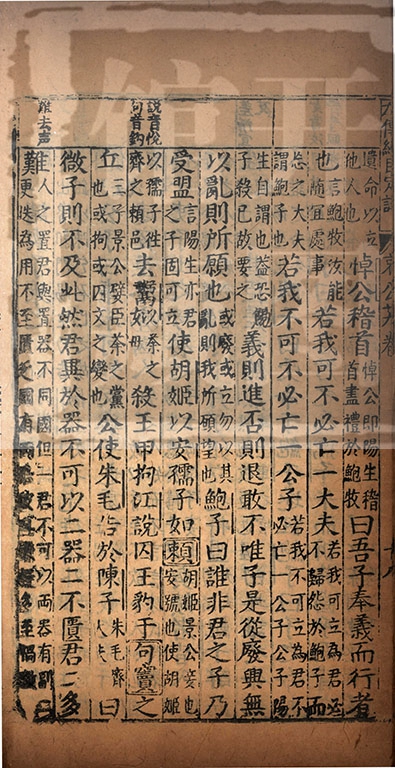 遺命以立
他人也
悼公稽首
悼公即陽生稽
首盡禮於鮑牧
曰吾子奉義而行者
也
言鮑牧汝能
循宜處事
若我可不必亡一大夫
若我可立為君必
不歸怨於鮑子而
忘之大夫
謂鮑子也
若我不可不必亡一公子
若我不可立為君不
必亡一公子公子陽
生自謂也蓋恐鮑
子殺已故要之
義則進否則退敢不唯子是從廢興無
以亂則所願也
或廢或立勿以其
亂則我所願望也
鮑子曰誰非君之子乃
受盟
言陽生亦君
之子固可立
使胡姬以安孺子如賴
胡姬景公妾也
安號也使胡姬
說音悅
句音鉤
以孺子往
齊之賴邑
去鬻姒
荼之
母
殺王甲拘江說囚王豹于句竇之
丘
三子景公嬖臣荼之黨
也或拘或囚文之變也
公使朱毛告於陳子
朱毛齊
大夫
曰
微子則不及此然君異於器不可以二器二不匱君二多
難去声
難
人之置君與置器不同國但一君不可以兩器有副
更迭為用不至匱乏國有